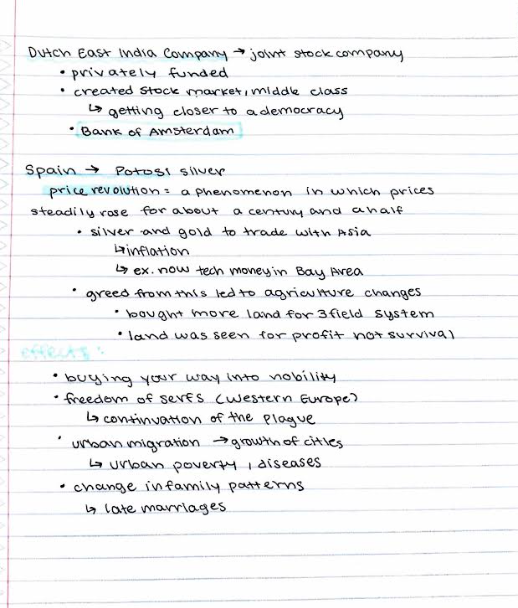 Dutch East India Company → joint stock company
• privately funded
• created stock market, middle class
↳ getting closer to a democracy
• Bank of Amsterdam
Spain → Potosi silver
price revolution = a phenomenon in which prices
steadily rose for about a century and a half
• silver and gold to trade with Asia
↳ inflation
↳ ex. now tech money in Bay Area
• greed from this led to agriculture changes
• bought more land for 3 field system
• land was seen for profit not survival
effects:
• buying your way into nobility
• freedom of serfs (Western Europe)
↳ continuation of the plague
• urban migration → growth of cities
↳ urban poverty, diseases
• change in family patterns
↳ late marriages